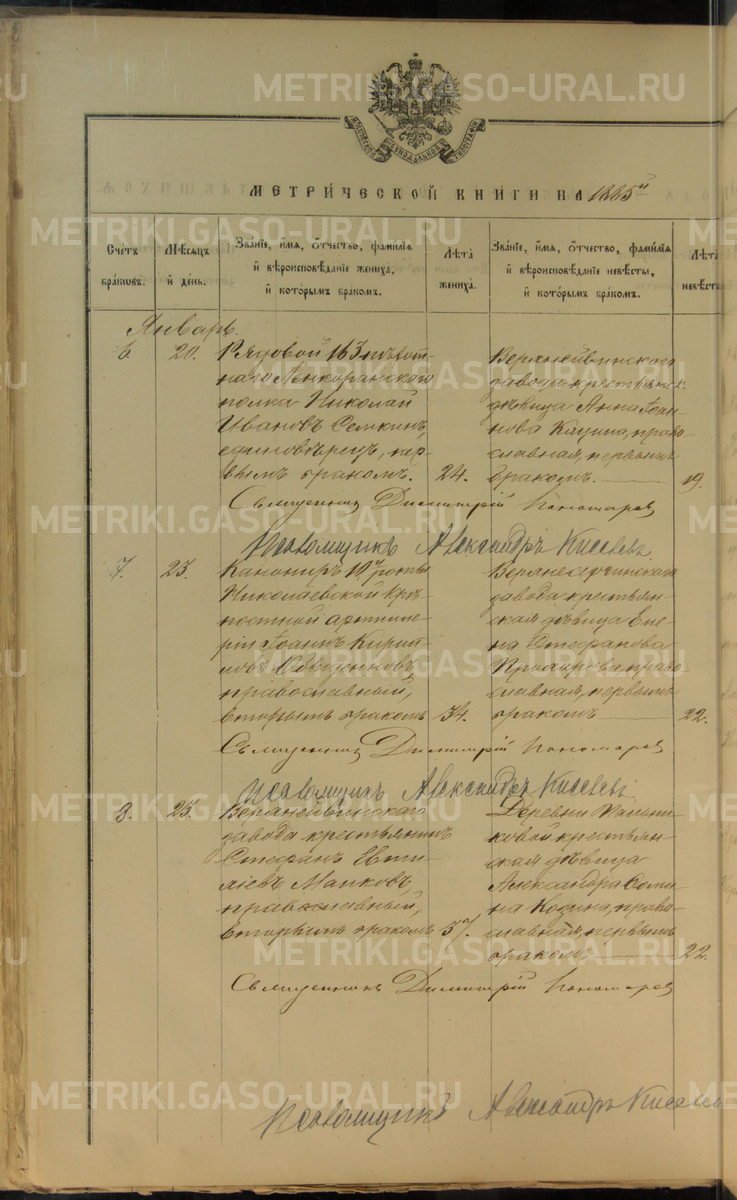 МЕТРИЧЕСКОЙ КНИГИ НА 1885й
Счетъ браковъ.
Мѣсяцъ и день.
Званіе, имя, отчество, фамилія
и вѣроисповѣданіе жениха,
и которымъ бракомъ.
Лѣта жениха.
Званіе, имя, отчество, фамилія
и вѣроисповѣданіе невѣсты,
и которымъ бракомъ.
Лѣта невѣсты
Январь.
6. 20.
Рядовой 163 пѣхот-
наго Ленкоранскаго
полка Николай
Ивановъ Семкинъ,
единовѣрецъ, пер-
вымъ бракомъ. 24.
Верхнейвинскаго
завода крестьянск.
дѣвица Анна Іоан-
нова, право-
славная, первымъ
бракомъ. 19.
Священникъ Димитрій Пономаревъ
Псаломщикъ Александръ Киселевъ.
7. 23.
Канониръ 10й роты
Николаевской крѣ-
постной артилле-
ріи Іоаннъ Кирил-
ловъ
православный,
вторымъ бракомъ 34.
завода, крестьян-
ская дѣвица Еле-
на Стефанова
право-
славная, первымъ
бракомъ 22.
Священникъ Димитрій Пономаревъ
Псаломщикъ Александръ Киселевъ
8. 23.
Верхнейвинскаго
завода крестьянинъ
Стефанъ
Маиковъ,
православный,
вторымъ бракомъ 37.
Деревни
крестьян-
ская дѣвица
Александра
право-
славная, первымъ
бракомъ 22.
Священникъ Димитрій Пономаревъ
Псаломщикъ Александръ Киселевъ
METRIKI.GASO-URAL.RU